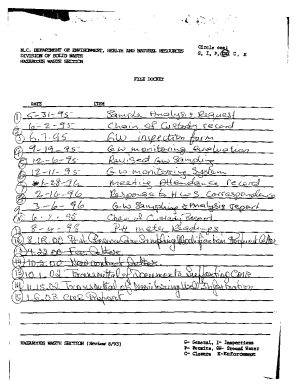 N.C. DEPARTMENT OF ENVIRONMENT, HEALTH AND NATURAL RESOURCES
DIVISION OF SOLID WASTE
HAZARDOUS WASTE SECTION
Circle one:
G, I, P, GW, C, E
FILE DOCKET
DATE ITEM
1 5-31-95 Sample Analysis Request
2 6-2-95 Chain of Custody record
3 6-7-95 GW inspection form
4 9-19-95 GW monitoring evaluation
5 12-6-95 Revised GW Sampling
6 12-11-95 GW monitoring System
7 -28-96 Meeting Attendance record
8 2-16-96 Response to HWS Correspondence
9 3-6-96 GW Sampling & Analysis report
10 Chain of Custody Record
11 8-4-98 PH meter Readings
12 8.18.00 Post Closure Care Sampling Modification Request Letter
13 4.22.00 Letter
14 10.2.00 Letter
15 10.1.02 Transmittal of Documents Supporting
16 11.15.02 Transmittal of Monitoring Well Information
17 1.6.03 Report
HAZARDOUS WASTE SECTION (Review 8/93)
G= General, I= Inspections
P= Permits, GW= Ground Water
C= Closure E=Enforcement